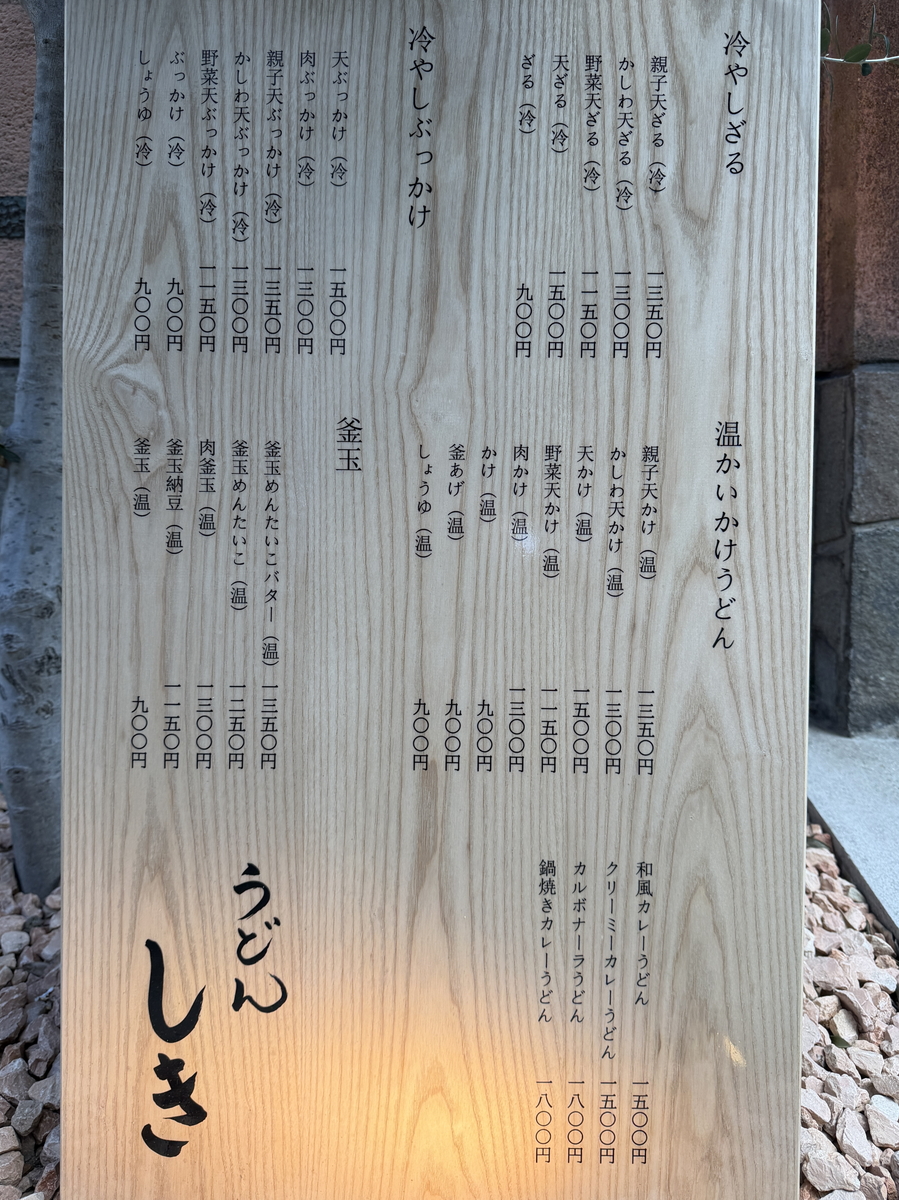 冷やしざる
親子天ざる（冷） 一三五〇円
かしわ天ざる（冷） 一三〇〇円
野菜天ざる（冷） 一一五〇円
天ざる（冷） 一五〇〇円
ざる（冷） 九〇〇円
冷やしぶっかけ
天ぶっかけ（冷） 一五〇〇円
肉ぶっかけ（冷） 一三〇〇円
親子天ぶっかけ（冷） 一三五〇円
かしわ天ぶっかけ（冷） 一三〇〇円
野菜天ぶっかけ（冷） 一一五〇円
ぶっかけ（冷） 九〇〇円
しょうゆ（冷） 九〇〇円
温かいかけうどん
親子天かけ（温） 一三五〇円
かしわ天かけ（温） 一三〇〇円
天かけ（温） 一五〇〇円
野菜天かけ（温） 一一五〇円
肉かけ（温） 一三〇〇円
かけ（温） 九〇〇円
釜あげ（温） 九〇〇円
しょうゆ（温） 九〇〇円
釜玉
釜玉めんたいこバター（温） 一三五〇円
釜玉めんたいこ（温） 一二五〇円
肉釜玉（温） 一三〇〇円
釜玉納豆（温） 一一五〇円
釜玉（温） 九〇〇円
和風カレーうどん 一五〇〇円
クリーミーカレーうどん 一五〇〇円
カルボナーラうどん 一八〇〇円
鍋焼きカレーうどん 一八〇〇円
うどん
しき